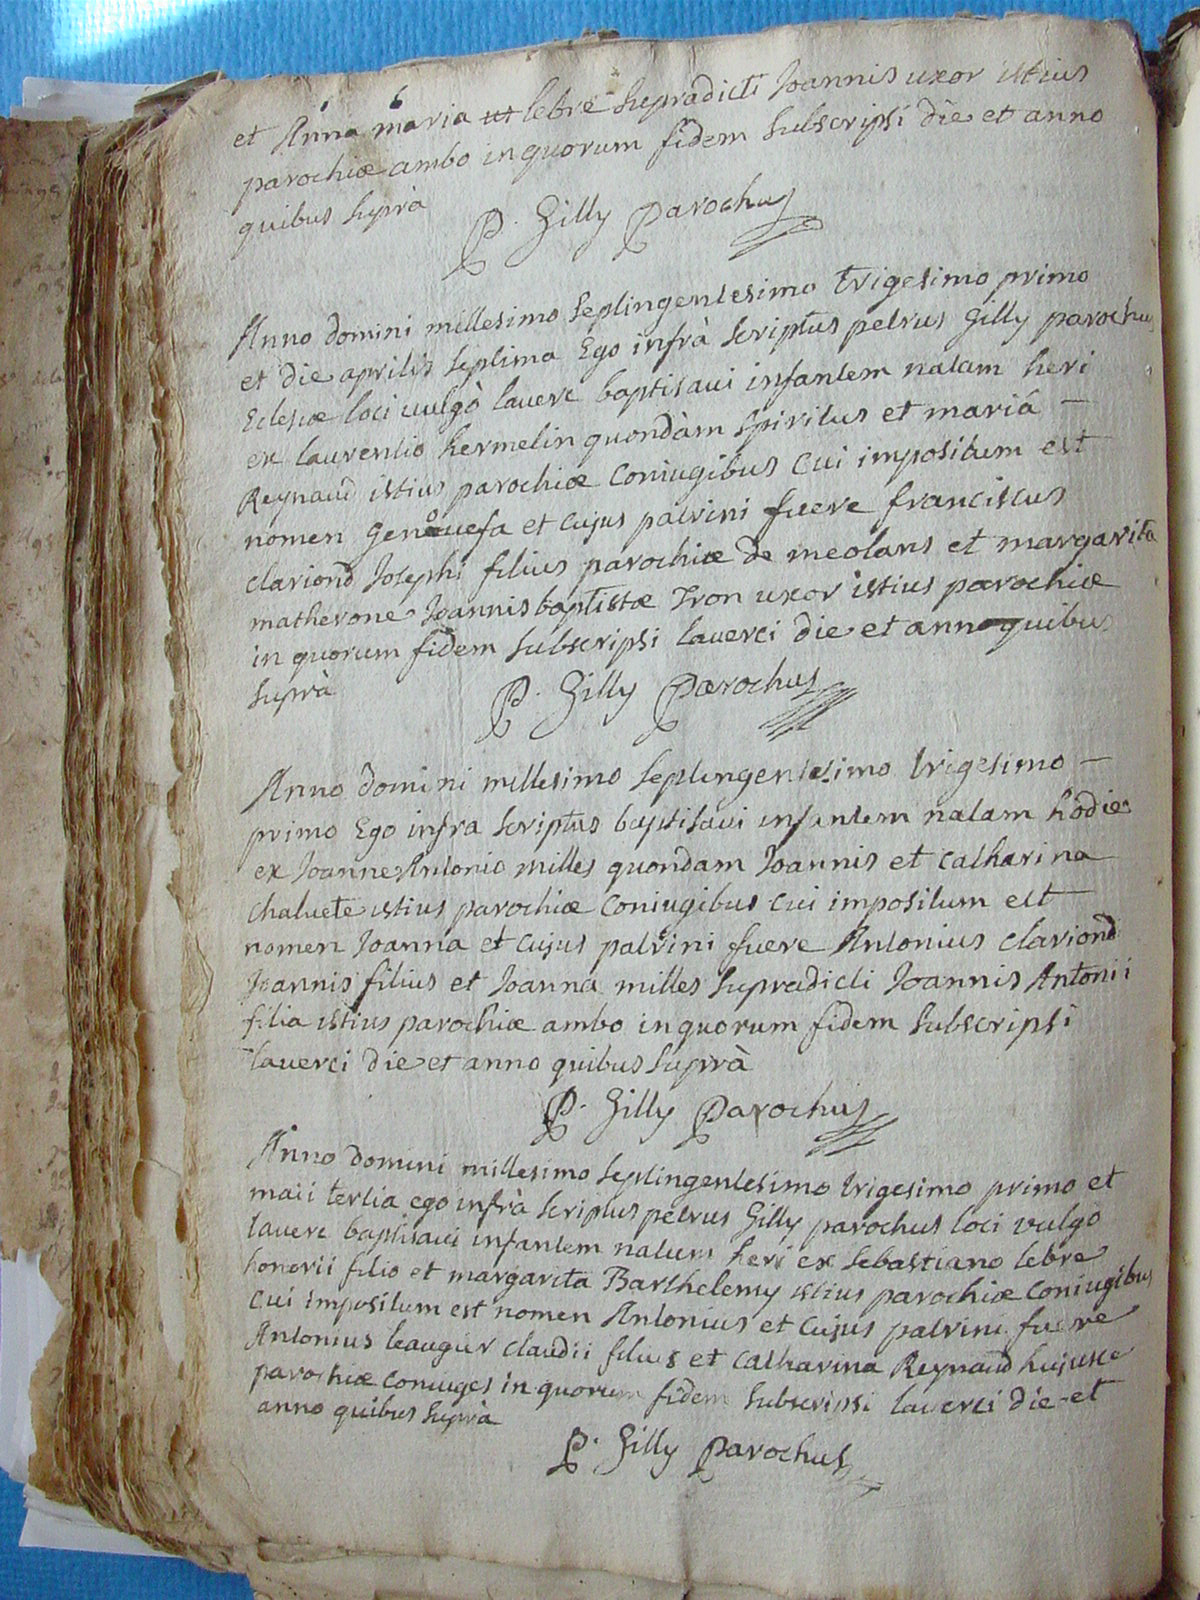 et Anna maria lebre supradicti Joannis uxor istius
parochiæ ambo in quorum fidem subscripsi die et anno
quibus suprà
P. Gilly Parochus
Anno domini millesimo septingentesimo trigesimo primo
et die aprilis septima Ego infrà scriptus petrus Gilly parochus
Eclesiæ loci vulgò laverc baptisavi infantem natam heri
ex laurentio hermelin quondàm spiritus et mariá –
Reynaud istius parochiæ coniugibus cui impositum est
nomen Genovefa et cujus patrini fuere franciscus
clariond Josephi filius parochiæ de meolans et margarita
matherone Joannis baptistæ Tron uxor istius parochiæ
in quorum fidem subscripsi laverci die et anno quibus
suprà
P. Gilly Parochus
Anno domini millesimo septingentesimo trigesimo –
primo Ego infra scriptus baptisavi infantem natam hodie
ex Joanne Antonio milles quondam Joannis et catharina
chaluete istius parochiæ coniugibus cui impositum est
nomen Joanna et cujus patrini fuere Antonius clariond
Joannis filius et Joanna milles supradicti Joannis Antonii
filia istius parochiæ ambo in quorum fidem subscripsi
laverci die et anno quibus suprà
P. Gilly Parochus
Anno domini millesimo septingentesimo trigesimo primo et
maii tertia ego infrà scriptus petrus Gilly parochus loci vulgò
laverc baptisavi infantem natum heri ex sebastiano lebre
honorii filio et margarita Barthelemy istius parochiæ coniugibus
cui impositum est nomen Antonius et cujus patrini fuere
Antonius leaugier claudii filius et catharina Reynaud hujusce
parochiæ coniuges in quorum fidem subscripsi laverci die et
anno quibus suprà
P. Gilly Parochus